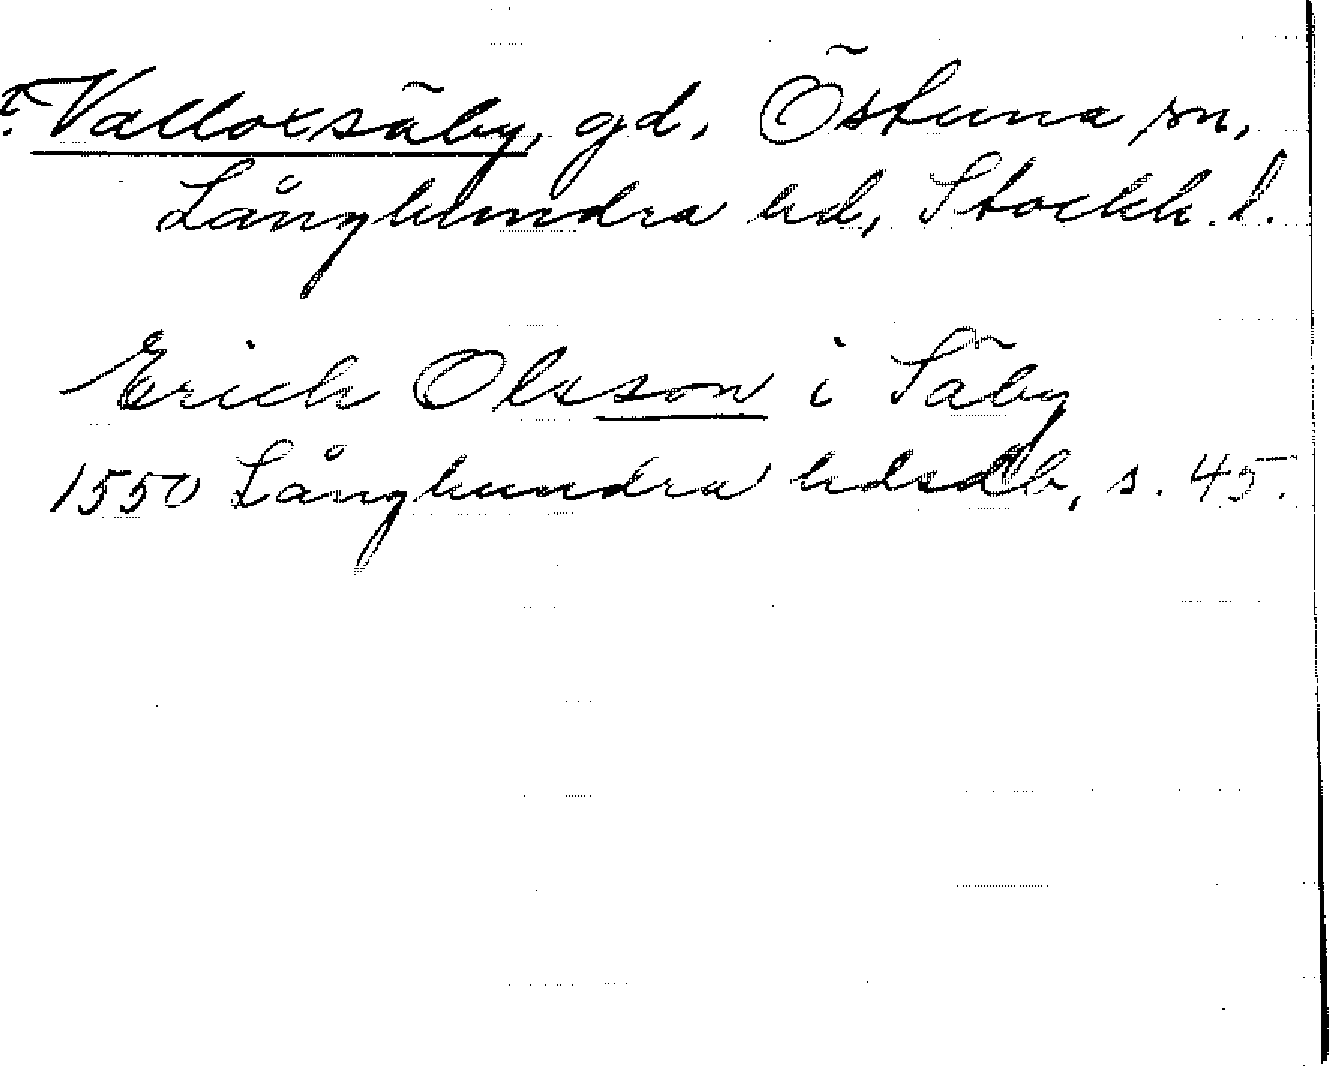 ? Valloxsäby, gd. Östuna sn,
Långhundra hd, Stockh. l.
Erich Olsson i Säby
1550 Långhundra hdsdb, s. 45.